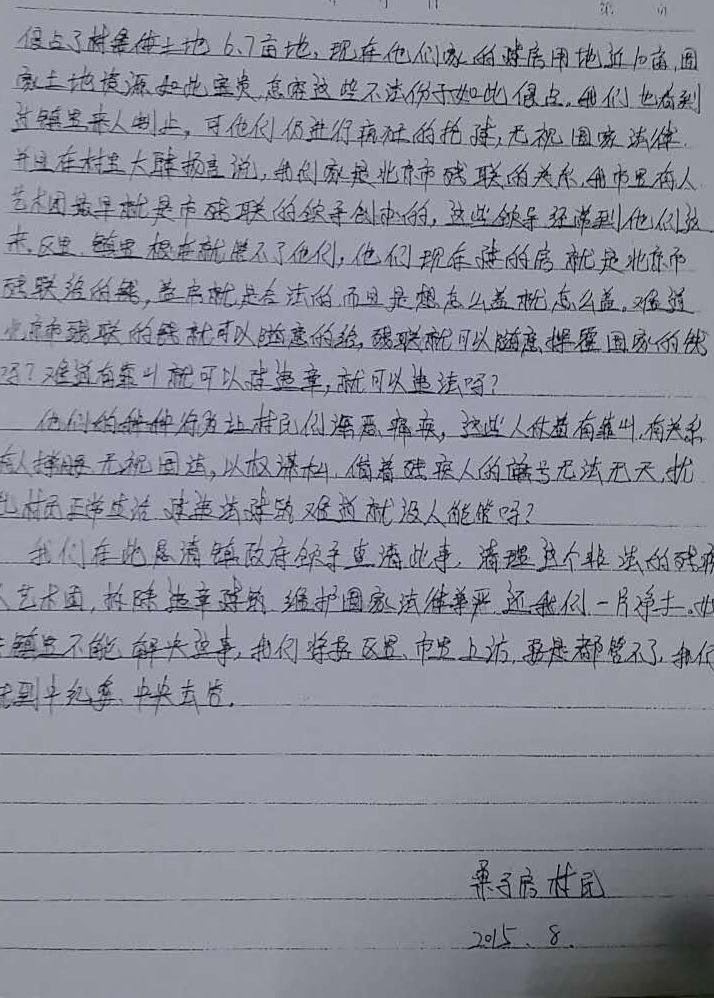 第 页
侵占了村集体土地 6.7亩地，现在他们家的建房用地近10亩，国
家土地资源如此宝贵，怎容这些不法份子如此侵占，我们也看到
过镇里来人制止，可他们仍进行疯狂的抢建，无视国家法律。
并且在村里大肆扬言说，我们家是北京市残联的关系，我市里有人
艺术团最早就是市残联的领导创办的，这些领导还常到他们这
来，区里、镇里根本就管不了他们，他们现在建的房就是北京市
残联给的钱，盖房就是合法的而且是想怎么盖就怎么盖。难道
北京市残联的钱就可以随意的给，残联就可以随意挥霍国家的钱
吗？难道有靠山就可以建违章，就可以违法吗？
他们的种种行为让村民们深恶痛疾，这些人仗着有靠山，有关系
有人撑腰 无视国法，以权谋私，借着残疾人的旗号无法无天，扰
乱村民正常生活 建违法建筑 难道就没人能管吗？
我们在此恳请镇政府领导查清此事，清理这个非法的残疾
人艺术团，拆除违章建筑 维护国家法律尊严 还我们一片净土。如
镇里不能解决这事，我们将去区里、市里上访，要是都管不了，我们
就到中纪委、中央去告。
桑子房村民
2015.8.